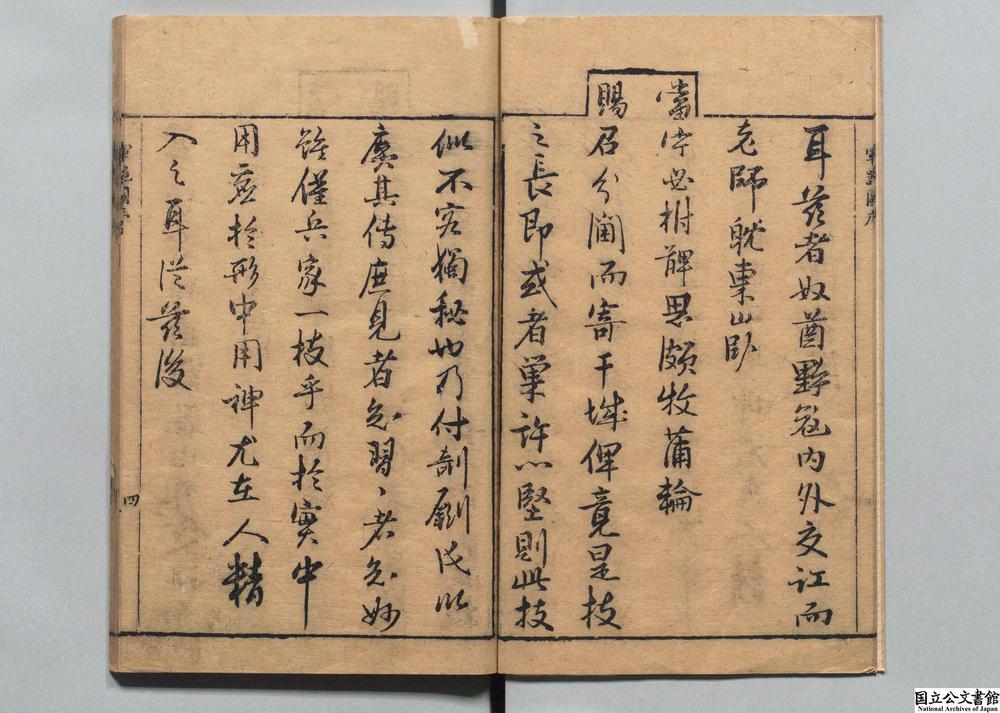 耳茲者奴酋黠寇内外交訌而
老師躭東山臥
當宁必拊髀思頗牧蒲輪
賜召分閫而寄干城俾竟是技
之長即或者巢許心堅則此技
似不容獨秘也乃付剞劂氏以
廣其傳庶見者知習〻者知妙
雖僅兵家一技乎而於實中
用虛於形中用神尤在人精
入之耳從茲後
四
国立公文書館
National Archives of Japan